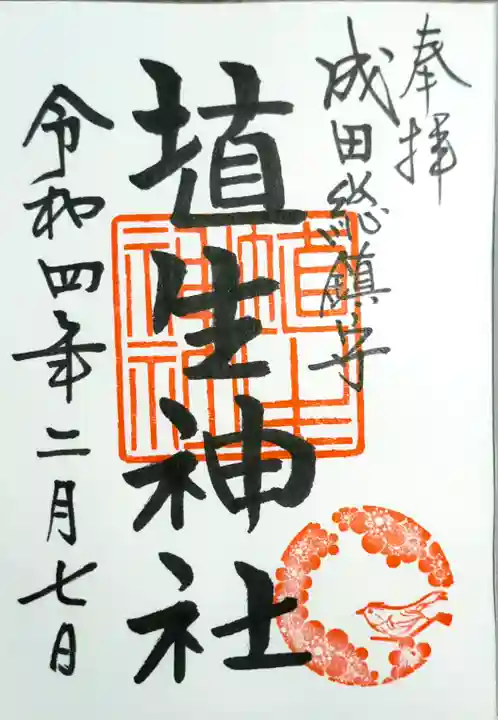 奉拝
成田総鎮守
埴生神社
令和四年二月七日